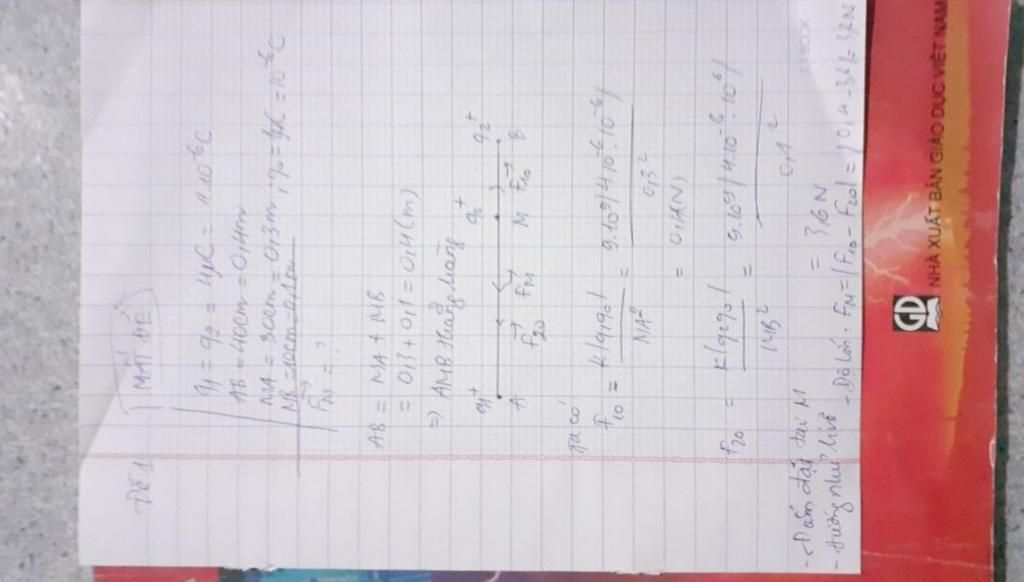 Đề 1 MẤT ĐỀ
q1 = q2 = 4μC = 4.10⁻⁶C
AB = 40cm = 0,4m
MA = 30cm = 0,3m ; q0 = 1μC = 10⁻⁶C
MB = 10cm = 0,1m
F⃗M = ?
AB = MA + MB
= 0,3 + 0,1 = 0,4(m)
⇒ AMB thẳng hàng
q1⁺ q0⁺ q2⁺
A F⃗20 F⃗M M F⃗10 B
Ta có
F10 = K|q1q0| / MA² = 9.10⁹|4.10⁻⁶.10⁻⁶| / 0,3²
= 0,4(N)
F20 = K|q2q0| / MB² = 9.10⁹|4.10⁻⁶.10⁻⁶| / 0,1²
= 3,6N
- Điểm đặt tại M
- Hướng như hình vẽ
- Độ lớn: FM = |F10 - F20| = |0,4 - 3,6| = 3,2N
GD
NHÀ XUẤT BẢN GIÁO DỤC VIỆT NAM